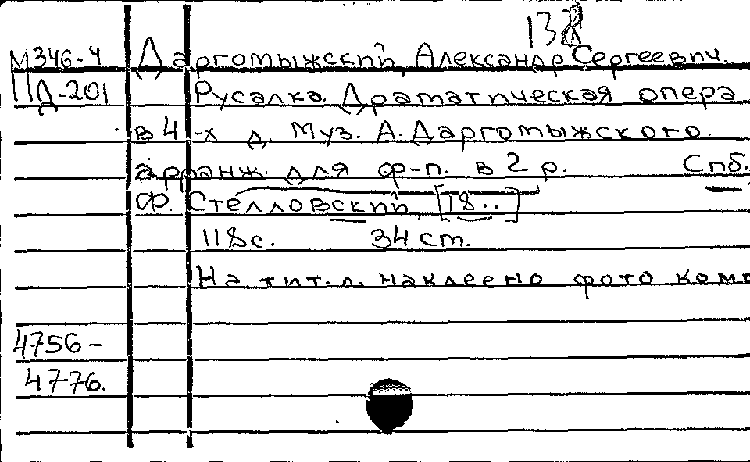 138
М346-4 Даргомыжский, Александр Сергеевич.
Д-201 Русалка. Драматическая опера
в 4-х д. Муз. А. Даргомыжского.
арранж. для ф-п. в 2 р. Спб.
Ф. Стелловский, [18..]
118с. 34 ст.
На тит. л. наклеено фото комп
4756-
4776.